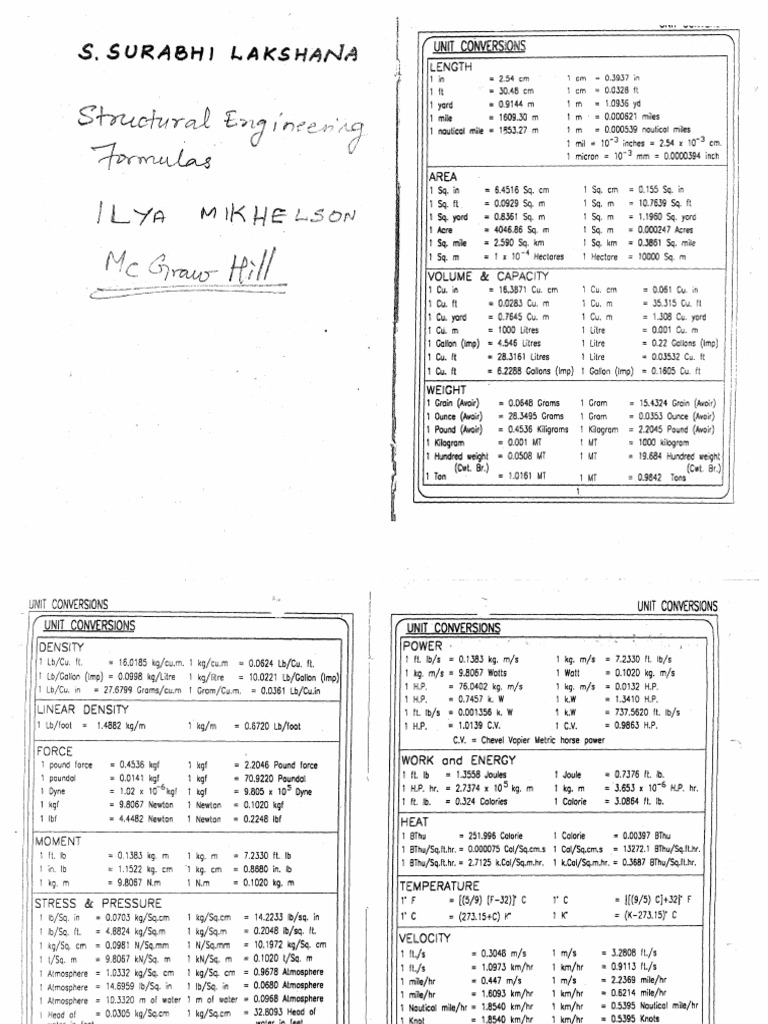 S. SURABHI LAKSHANA
Structural Engineering
Formulas
ILYA MIKHELSON
McGraw Hill
UNIT CONVERSIONS
LENGTH
1 in = 2.54 cm 1 cm = 0.3937 in
1 ft = 30.48 cm 1 cm = 0.0328 ft
1 yard = 0.9144 m 1 m = 1.0936 yd
1 mile = 1609.30 m 1 m = 0.000621 miles
1 nautical mile = 1853.27 m 1 m = 0.000539 nautical miles
1 mil = 10⁻³ inches = 2.54 x 10⁻³ cm.
1 micron = 10⁻³ mm = 0.0000394 inch
AREA
1 Sq. in = 6.4516 Sq. cm 1 Sq. cm = 0.155 Sq. in
1 Sq. ft = 0.0929 Sq. m 1 Sq. m = 10.7639 Sq. ft
1 Sq. yard = 0.8361 Sq. m 1 Sq. m = 1.1960 Sq. yard
1 Acre = 4046.86 Sq. m 1 Sq. m = 0.000247 Acres
1 Sq. mile = 2.590 Sq. km 1 Sq. km = 0.3861 Sq. mile
1 Sq. m = 1 x 10⁻⁴ Hectares 1 Hectare = 10000 Sq. m
VOLUME & CAPACITY
1 Cu. in = 16.3871 Cu. cm 1 Cu. cm = 0.061 Cu. in
1 Cu. ft = 0.0283 Cu. m 1 Cu. m = 35.315 Cu. ft
1 Cu. yard = 0.7645 Cu. m 1 Cu. m = 1.308 Cu. yard
1 Cu. m = 1000 Litres 1 Litre = 0.001 Cu. m
1 Gallon (Imp) = 4.546 Litres 1 Litre = 0.22 Gallons (Imp)
1 Cu. ft = 28.3161 Litres 1 Litre = 0.03532 Cu. ft
1 Cu. ft = 6.2288 Gallons (Imp) 1 Gallon (Imp) = 0.1605 Cu. ft
WEIGHT
1 Grain (Avoir) = 0.0648 Grams 1 Gram = 15.4324 Grain (Avoir)
1 Ounce (Avoir) = 28.3495 Grams 1 Gram = 0.0353 Ounce (Avoir)
1 Pound (Avoir) = 0.4536 Kiligrams 1 Kilogram = 2.2045 Pound (Avoir)
1 Kilogram = 0.001 MT 1 MT = 1000 kilogram
1 Hundred weight = 0.0508 MT 1 MT = 19.684 Hundred weight
(Cwt. Br.) (Cwt. Br.)
1 Ton = 1.0161 MT 1 MT = 0.9842 Tons
1
UNIT CONVERSIONS
UNIT CONVERSIONS
DENSITY
1 Lb/Cu. ft. = 16.0185 kg/cu.m. 1 kg/cu.m = 0.0624 Lb/Cu. ft.
1 Lb/Gallon (Imp) = 0.0998 kg/Litre 1 kg/litre = 10.0221 Lb/Gallon (Imp)
1 Lb/Cu. in = 27.6799 Grams/cu.m 1 Grom/Cu.m. = 0.0361 Lb/Cu.in
LINEAR DENSITY
1 Lb/foot = 1.4882 kg/m 1 kg/m = 0.6720 Lb/foot
FORCE
1 pound force = 0.4536 kgf 1 kgf = 2.2046 Pound force
1 poundal = 0.0141 kgf 1 kgf = 70.9220 Poundal
1 Dyne = 1.02 x 10⁻⁶ kgf 1 kgf = 9.805 x 10⁵ Dyne
1 kgf = 9.8067 Newton 1 Newton = 0.1020 kgf
1 lbf = 4.4482 Newton 1 Newton = 0.2248 lbf
MOMENT
1 ft. lb = 0.1383 kg. m 1 kg. m = 7.2330 ft. lb
1 in. lb = 1.1522 kg. cm 1 kg. cm = 0.8680 in. lb
1 kg. m = 9.8067 N.m 1 N.m = 0.1020 kg. m
STRESS & PRESSURE
1 lb/Sq. in = 0.0703 kg/Sq.cm 1 kg/Sq.cm = 14.2233 lb/sq. in
1 lb/Sq. ft. = 4.8824 kg/Sq.m 1 kg/Sq.m = 0.2048 lb/Sq. ft.
1 kg/Sq. cm = 0.0981 N/Sq.mm 1 N/Sq.mm = 10.1972 kg/Sq. cm
1 t/Sq. m = 9.8067 kN/Sq. m 1 kN/Sq. m = 0.1020 t/Sq. m
1 Atmosphere = 1.0332 kg/Sq. cm 1 kg/Sq. cm = 0.9678 Atmosphere
1 Atmosphere = 14.6959 lb/Sq. in 1 lb/Sq. in = 0.0680 Atmosphere
1 Atmosphere = 10.3320 m of water 1 m of water = 0.0968 Atmosphere
1 Head of = 0.0305 kg/Sq. cm 1 kg/Sq. cm = 32.8093 Head of
water in feet water in feet
UNIT CONVERSIONS
UNIT CONVERSIONS
POWER
1 ft. lb/s = 0.1383 kg. m/s 1 kg. m/s = 7.2330 ft. lb/s
1 kg. m/s = 9.8067 Watts 1 Watt = 0.1020 kg. m/s
1 H.P. = 76.0402 kg. m/s 1 kg. m/s = 0.0132 H.P.
1 H.P. = 0.7457 k. W 1 k.W = 1.3410 H.P.
1 ft. lb/s = 0.001356 k. W 1 k.W = 737.5620 ft. lb/s
1 H.P. = 1.0139 C.V. 1 C.V. = 0.9863 H.P.
C.V. = Chevel Vapier Metric horse power
WORK and ENERGY
1 ft. lb = 1.3558 Joules 1 Joule = 0.7376 ft. lb.
1 H.P. hr. = 2.7374 x 10⁵ kg. m 1 kg. m = 3.653 x 10⁻⁶ H.P. hr.
1 ft. lb. = 0.324 Calories 1 Calorie = 3.0864 ft. lb.
HEAT
1 BThu = 251.996 Calorie 1 Calorie = 0.00397 BThu
1 BThu/Sq.ft.hr. = 0.000075 Cal/Sq.cm.s 1 Cal/Sq.cm.s = 13272.1 BThu/Sq.ft.hr.
1 BThu/Sq.ft.hr. = 2.7125 k.Cal/Sq.m.hr. 1 k.Cal/Sq.m.hr. = 0.3687 BThu/Sq.ft.hr.
TEMPERATURE
1° F = [(5/9) [F-32)]° C 1° C = [[(9/5) C]+32]° F
1° C = (273.15+C) K° 1 K° = (K-273.15)° C
VELOCITY
1 ft./s = 0.3048 m/s 1 m/s = 3.2808 ft./s
1 ft./s = 1.0973 km/hr 1 km/hr = 0.9113 ft./s
1 mile/hr = 0.447 m/s 1 m/s = 2.2369 mile/hr
1 mile/hr = 1.6093 km/hr 1 km/hr = 0.6214 mile/hr
1 Nautical mile/hr = 1.8540 km/hr 1 km/hr = 0.5395 Nautical mile/hr
1 Knot = 1.8540 km/hr 1 km/hr = 0.5395 Knots